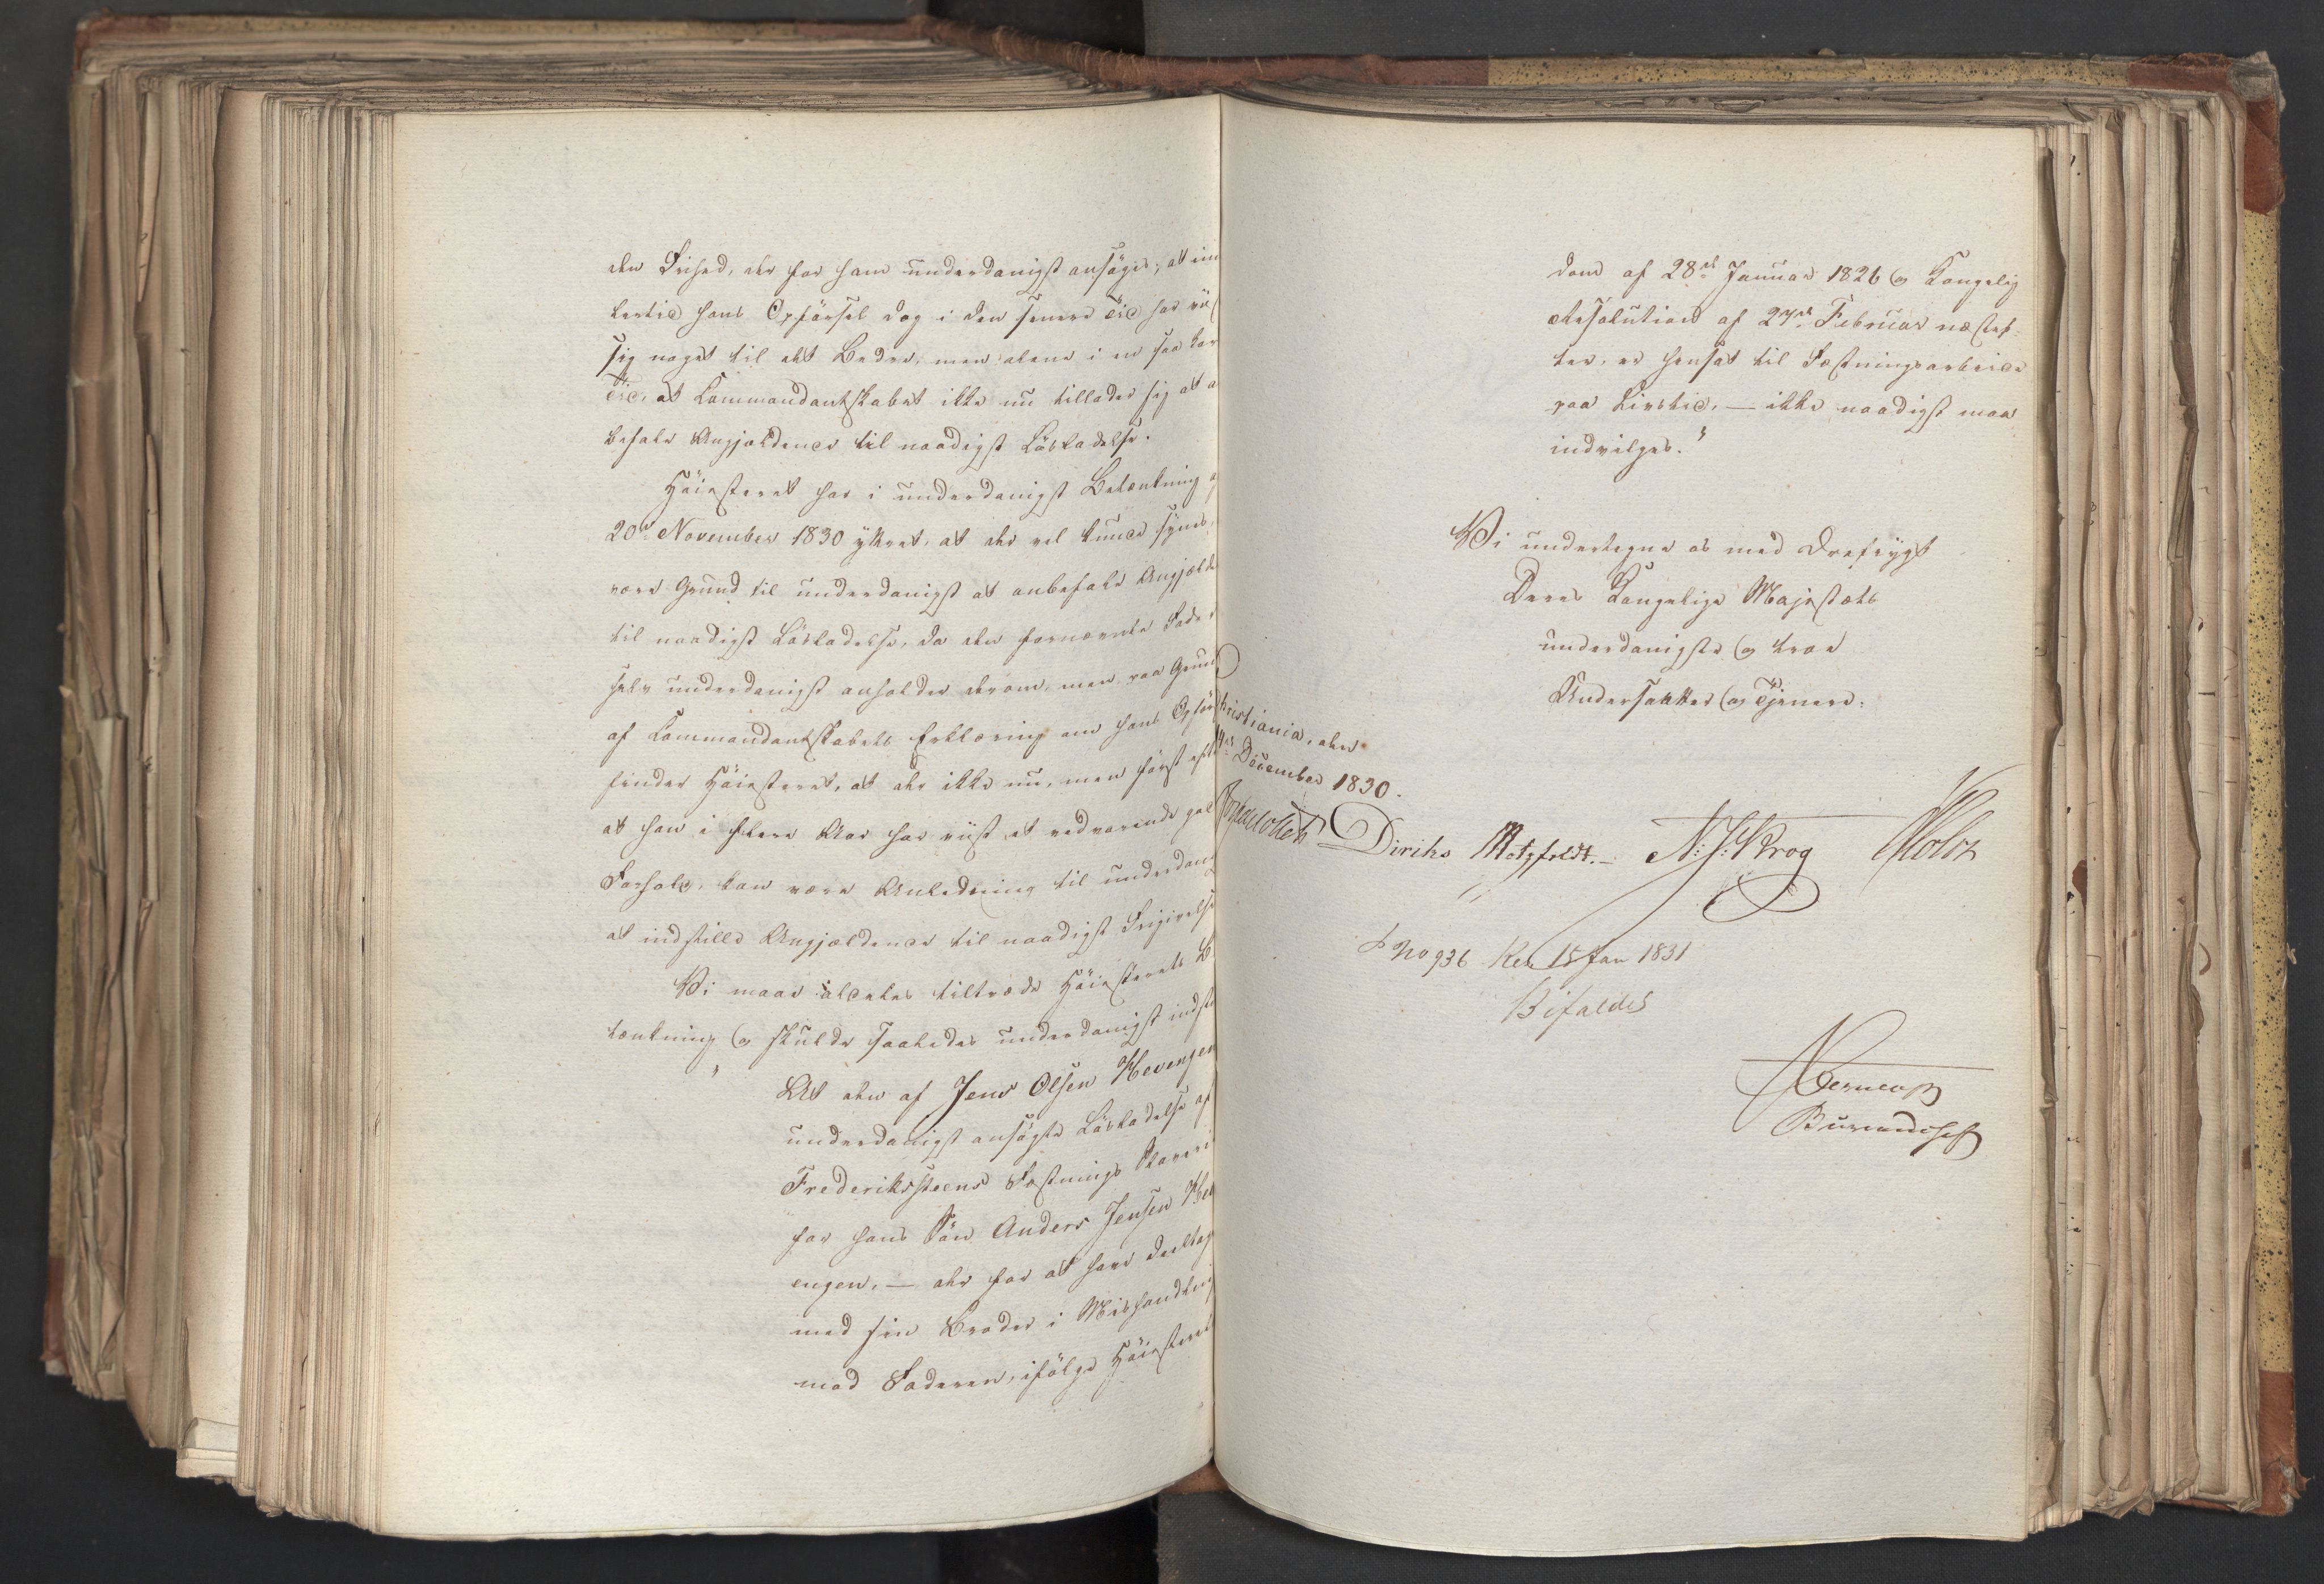 den Frihed, der for ham underdanigst ansøges; at im
lertid hans Opførsel dog i den senere Tid har
sig noget til det Bedre, men alene i en saa kor
Tid, at Kommandantskabet ikke nu tillader sig at a
befale Angjældende til naadigst Løsladelse.
Høiesteret har i underdanigst Betænkning
20de November 1830 yttret, at der vel kunde synes
være Grund til underdanigst at anbefale Angjæld
til naadigst Løsladelse, da den fornærmede Fader
selv underdanigst anholder derom, men paa Grund
af Kommandantskabets Erklæring om hans Opfør
finder Høiesteret, at der ikke nu, men først eft
at han i flere Aar har viist et vedvarende god
Forhold, kan være Anledning til underdan
at indstille Angjældende til naadigst Frigivelse
Vi maae aldeles tiltræde Høiesterets B
tænkning og skulde saaledes underdanigst indst
" At den af Jens Olsen Hevengen
underdanigst ansøgte Løsladelse af
Frederikssteens Fæstnings Slaveri
for hans Søn Anders Jensen Hev
engen, — der for at have deeltag
med sin Broder i Mishandling
mod Faderen, ifølge Høiesteret
dom af 28de Januar 1826 og Kongelig
Resolution af 27de Februar næstef-
ter, er hensat til Fæstningsarbeide
paa Livstid, — ikke naadigst maa
indvilges."
Vi undertegne os med Ærefrygt
Deres Kongelige Majestæts
underdanigste og troe
Undersaatter og Tjenere.
Christiania, den
December 1830.
Diriks Motzfeldt.— N: J: Krog Holst
No 936 Res 15 Jan 1831
Bifaldes